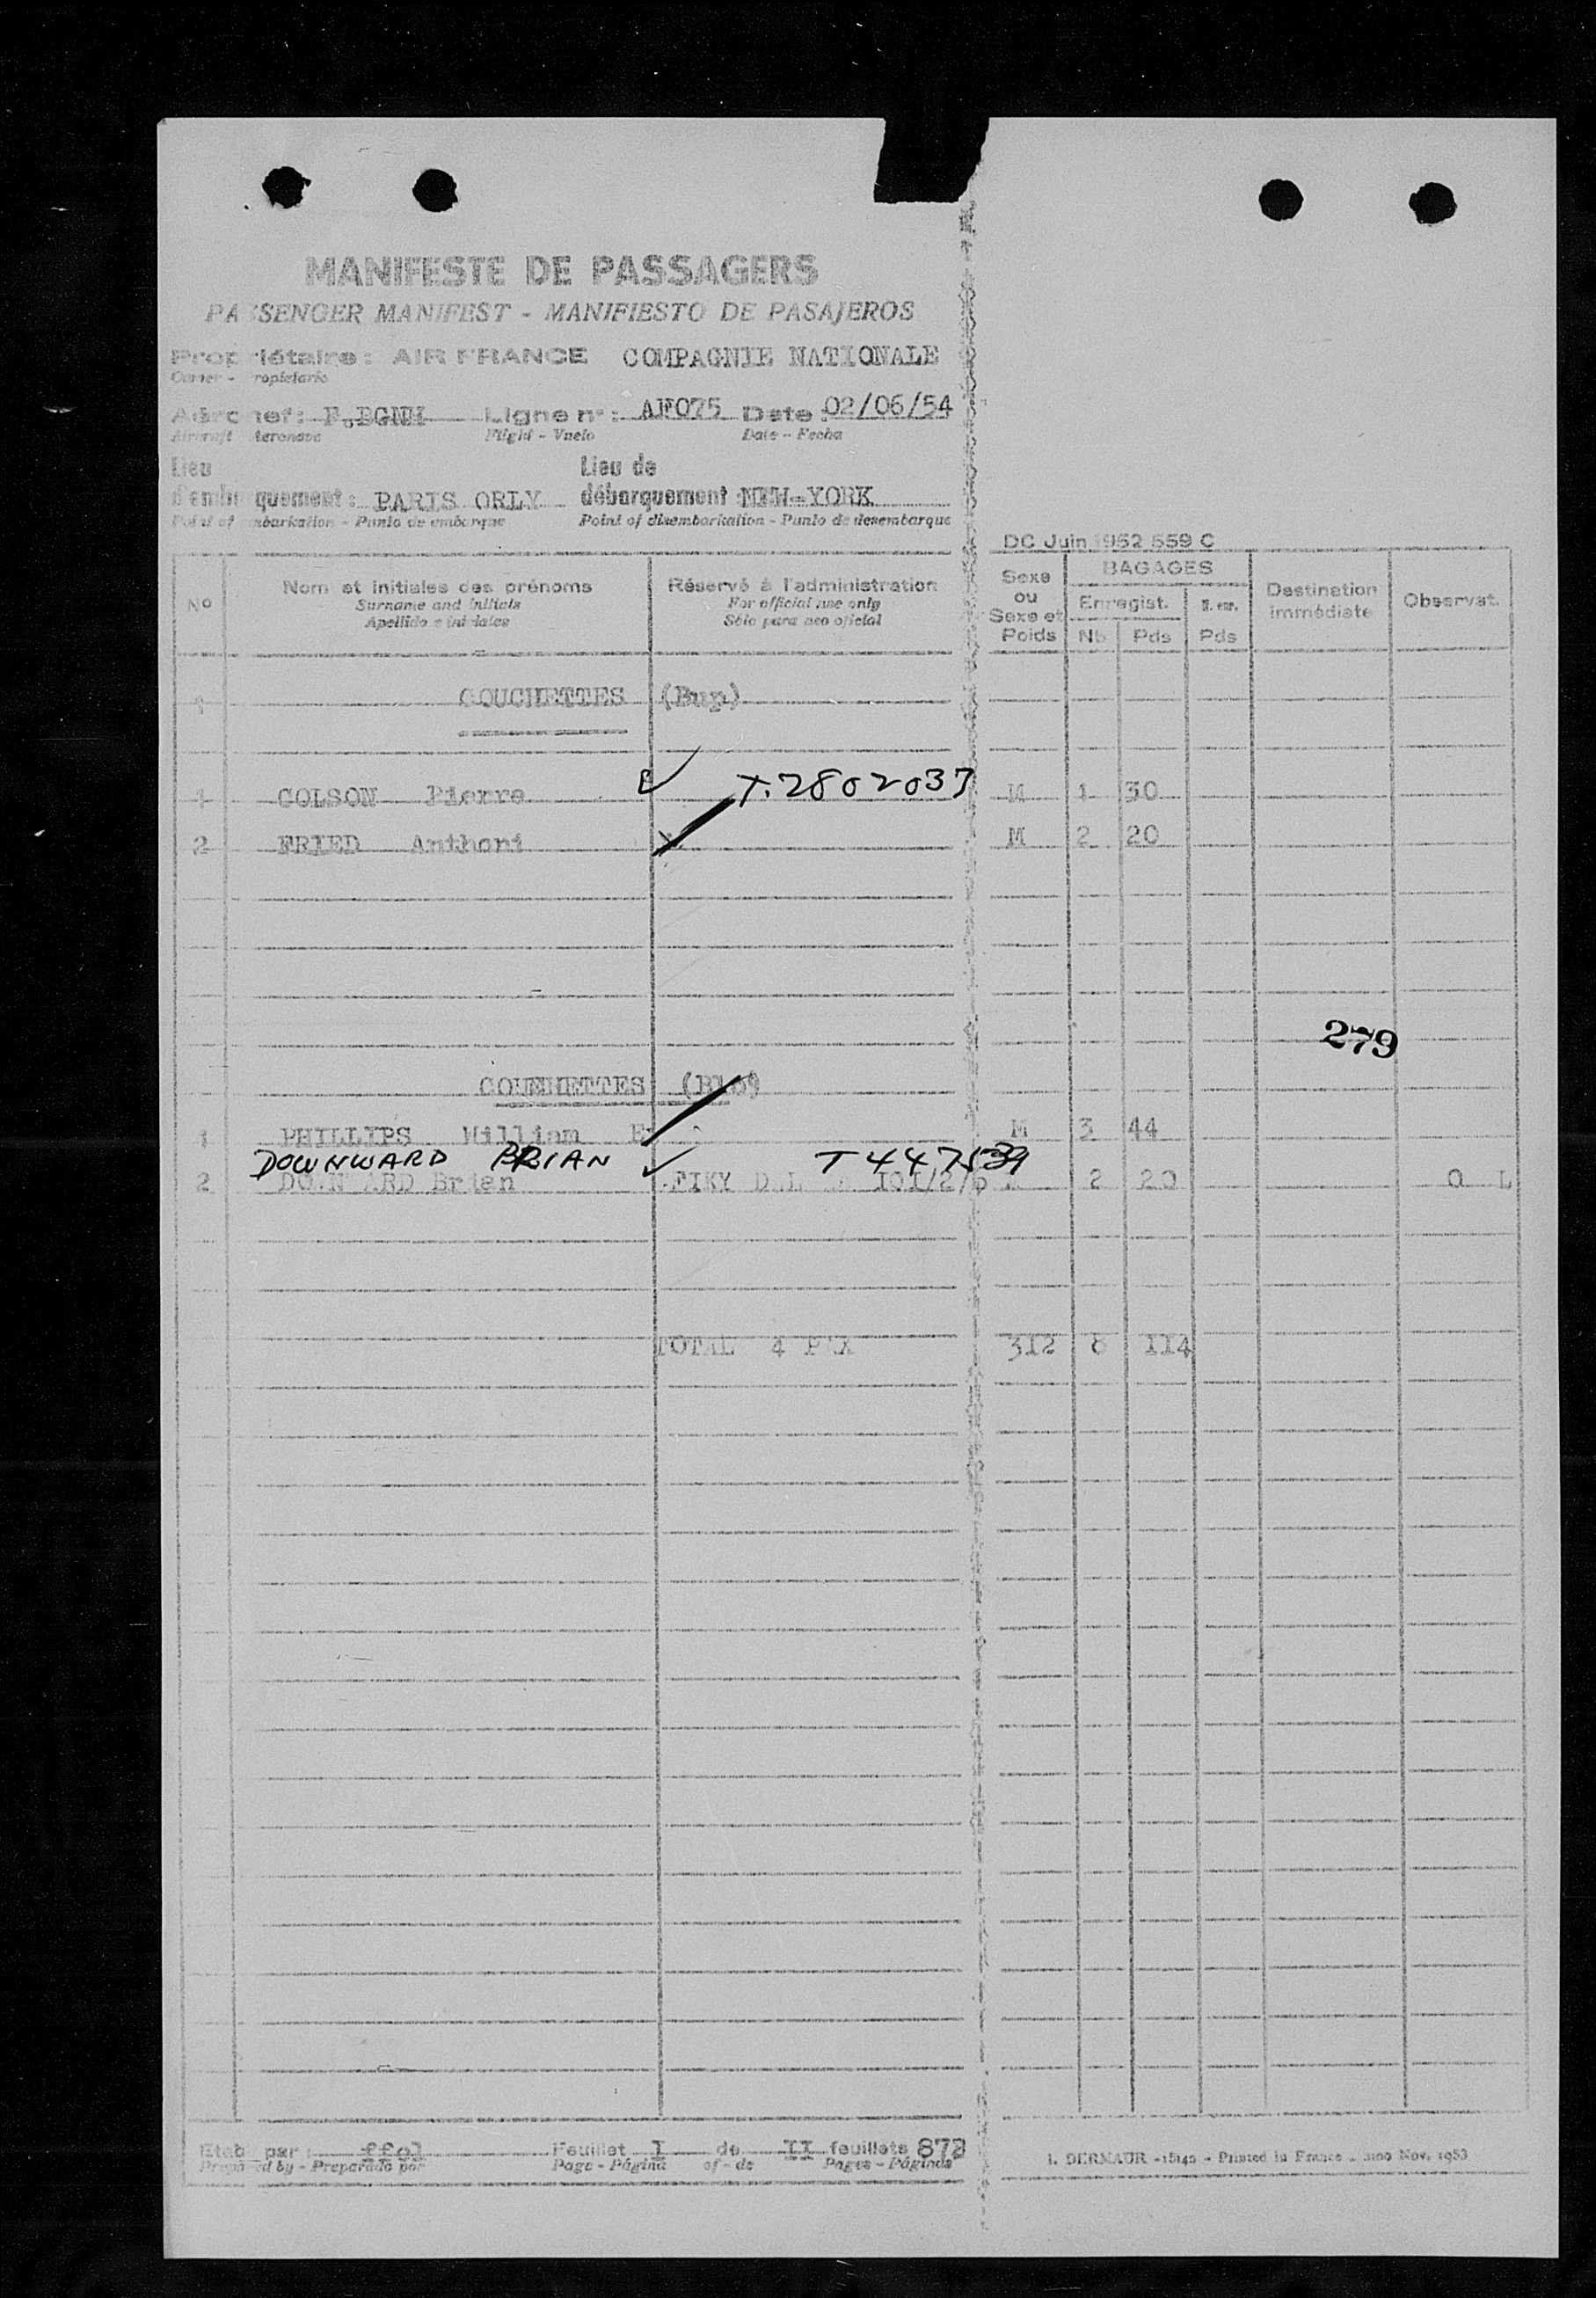 MANIFESTE DE PASSAGERS
PASSENGER MANIFEST - MANIFIESTO DE PASAJEROS
Propriétaire : AIR FRANCE COMPAGNIE NATIONALE
Owner - ropietario
Aéronef : F.BGNH Ligne n° : AF075 Date : 02/06/54
Aircraft - Aeronave Flight - Vuelo Date - Fecha
Lieu Lieu de
d'embarquement : PARIS ORLY débarquement NEW-YORK
Point of embarkation - Punto de embarque Point of disembarkation - Punto de desembarque
DC Juin 1952 559 C
N° Nom et initiales des prénoms Réservé à l'administration Sexe ou Sexe et Poids BAGAGES Enregist. Nb Pds Pds Destination immédiate Observat.
Surname and initials For official use only
Apellido e iniciales Sólo para uso oficial
1 COUCHETTES (Bup)
1 COLSON Pierre T.2802037 M 1 30
2 FRIED Anthoni M 2 20
279
COUCHETTES
1 PHILLIPS William E M 3 44
DOWNWARD BRIAN T447539
2 DOWNWARD Brien 101/2/6 2 20 O L
TOTAL 4 PAX 312 8 114
Etab par : Feuillet I de II feuillets 873
Prepared by - Preparado por Page - Página of - de Pages - Páginas
I. DERMAUR - 18140 - Printed in France - Nov. 1953